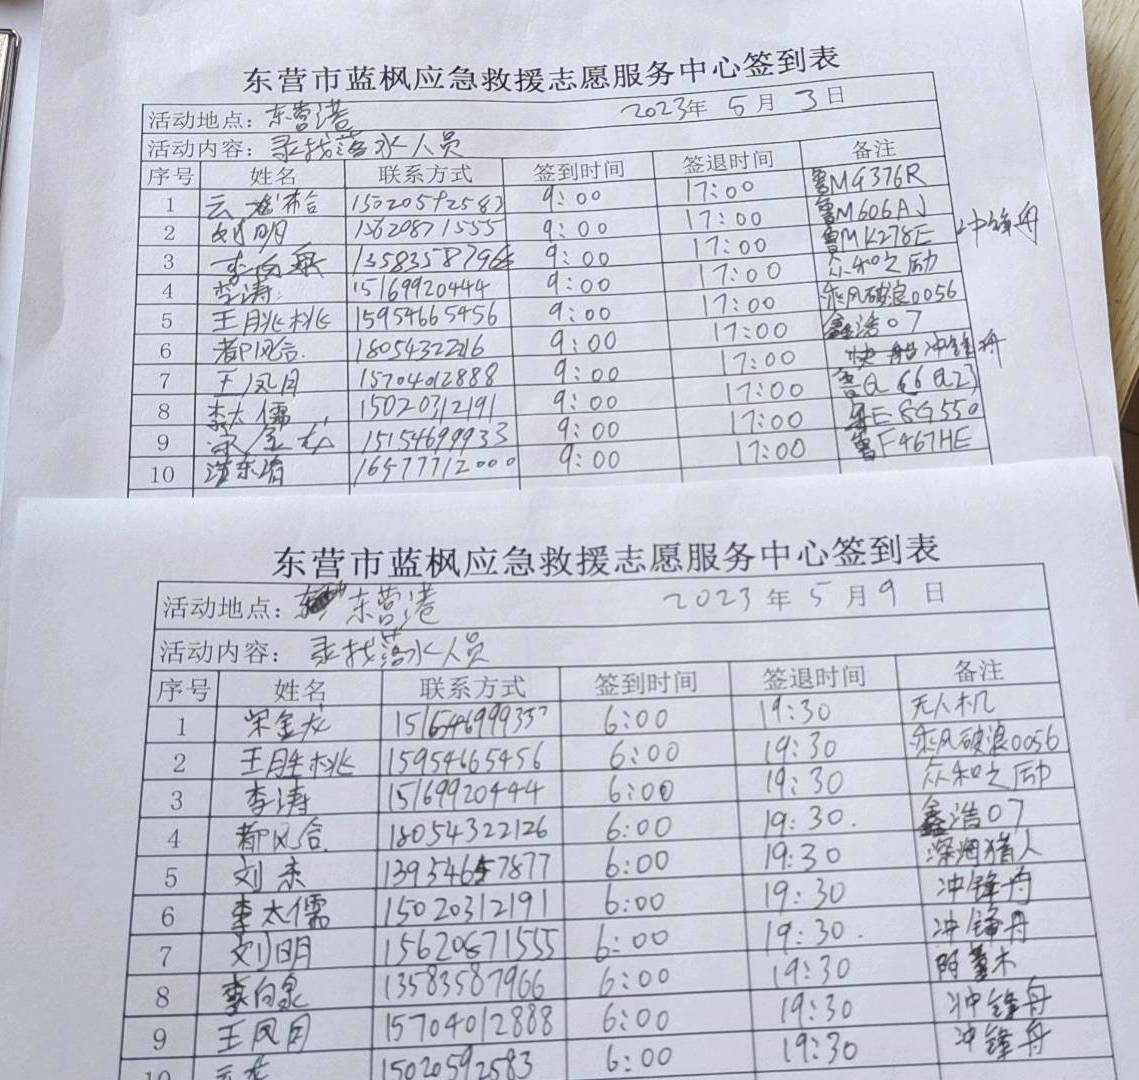 东营市蓝枫应急救援志愿服务中心签到表
活动地点：东营港 2023年 5月 3日
活动内容：寻找落水人员
序号 姓名 联系方式 签到时间 签退时间 备注
1 15020592583 9:00 17:00 鲁MG376R
2 刘明 15620871555 9:00 17:00 鲁M606AJ
3 李向泉 13583587966 9:00 17:00 鲁MK278E 冲锋舟
4 李涛 15169920444 9:00 17:00 众和之励
5 王胜桃 15954665456 9:00 17:00 乘风破浪0056
6 都风合 9:00 17:00 鑫浩07
7 王凤月 15704012888 9:00 17:00 快船冲锋舟
8 李太儒 15020312191 9:00 17:00
9 宋金龙 15154699933 9:00 17:00 鲁E8G550
10 16577712000 9:00 17:00 鲁F467HE
东营市蓝枫应急救援志愿服务中心签到表
活动地点：东营港 2023年 5月 9日
活动内容：寻找落水人员
序号 姓名 联系方式 签到时间 签退时间 备注
1 宋金龙 6:00 19:30 无人机
2 王胜桃 15954665456 6:00 19:30 乘风破浪0056
3 李涛 15169920444 6:00 19:30 众和之励
4 都风合 18054322126 6:00 19:30. 鑫浩07
5 刘杰 13954657877 6:00 19:30 深海猎人
6 李太儒 15020312191 6:00 19:30 冲锋舟
7 刘明 15620871555 6:00 19:30. 冲锋舟
8 李向泉 13583587966 6:00 19:30
9 王凤月 15704012888 6:00 19:30 冲锋舟
10 15020592583 6:00 19:30 冲锋舟